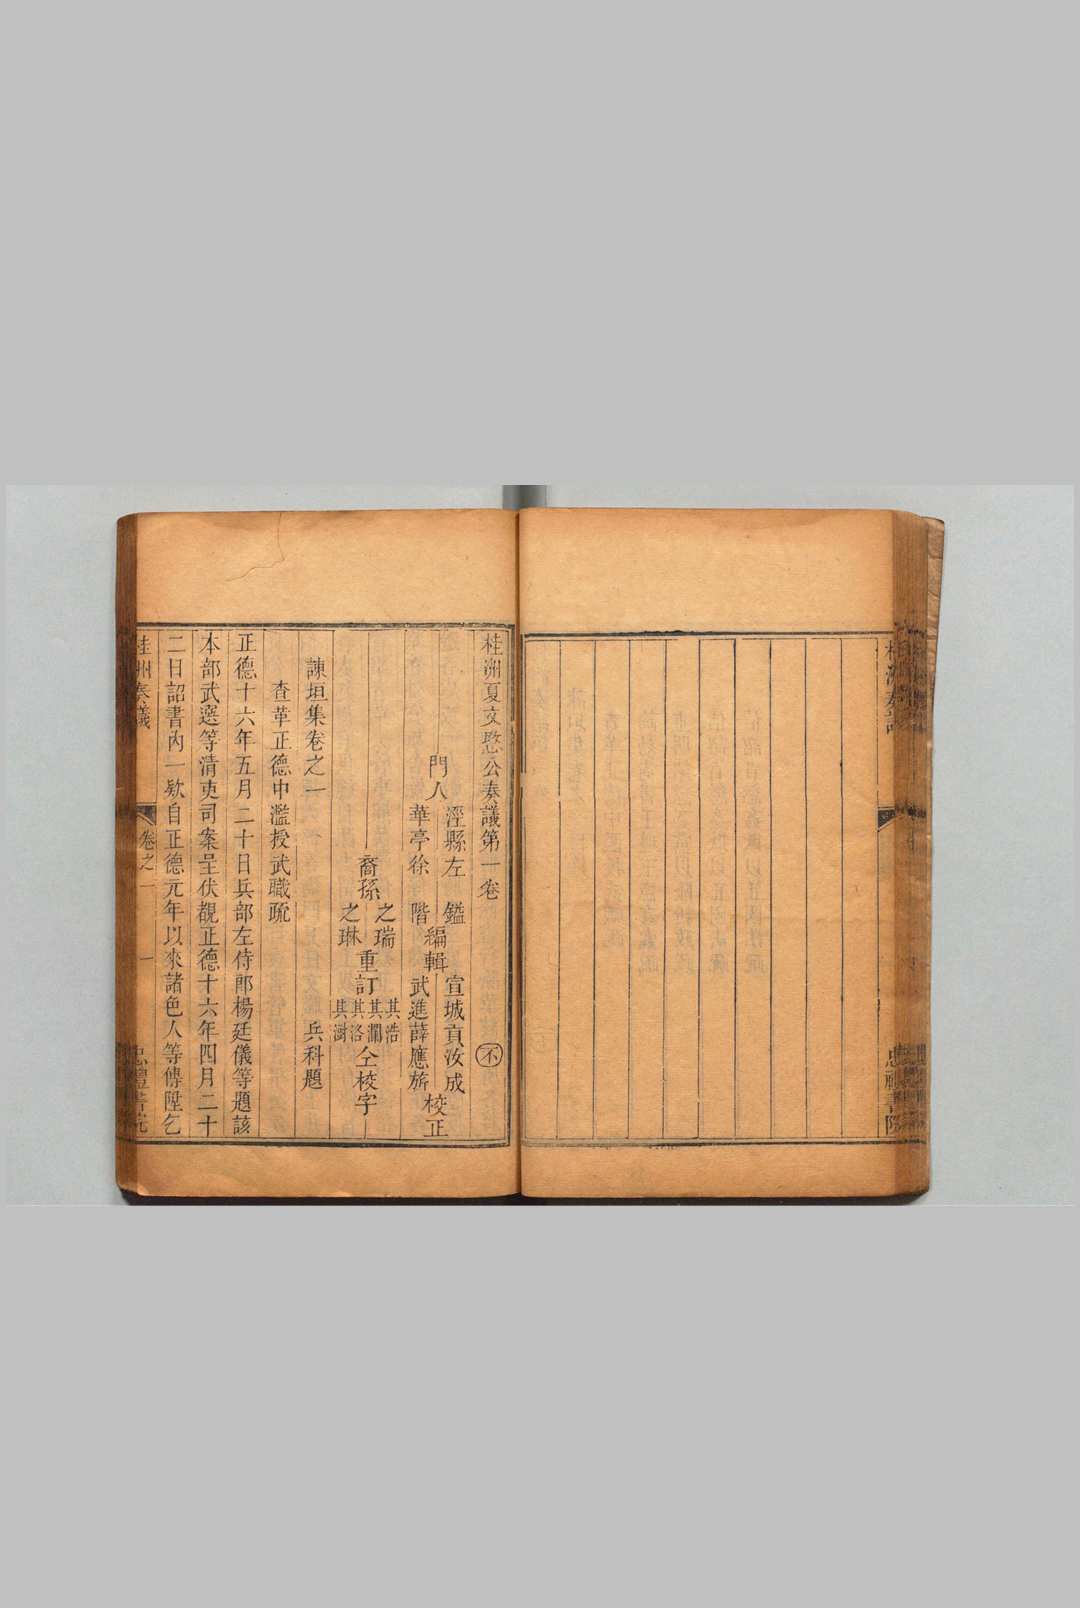 桂洲奏
忠禮書院
桂洲夏文愍公奏議第一卷 不
門人
涇縣左鎰
華亭徐階
編輯
宣城貢汝成
武進薛應旂
校正
裔孫
之瑞
之琳
重訂
其浩
其瀾
其洛
其澍
仝校字
諫垣集卷之一 兵科題
查革正德中濫授武職疏
正德十六年五月二十日兵部左侍郎楊廷儀等題該
本部武選等清吏司案呈伏覩正德十六年四月二十
二日詔書內一欵自正德元年以來諸色人等傳陞乞
桂州奏議 卷之一 一 忠禮書院